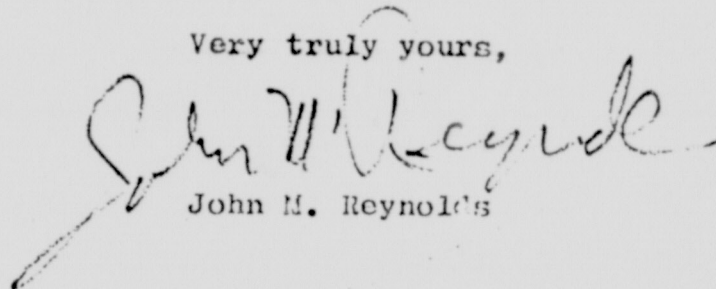 Very truly yours,
John M. Reynolds
John M. Reynolds